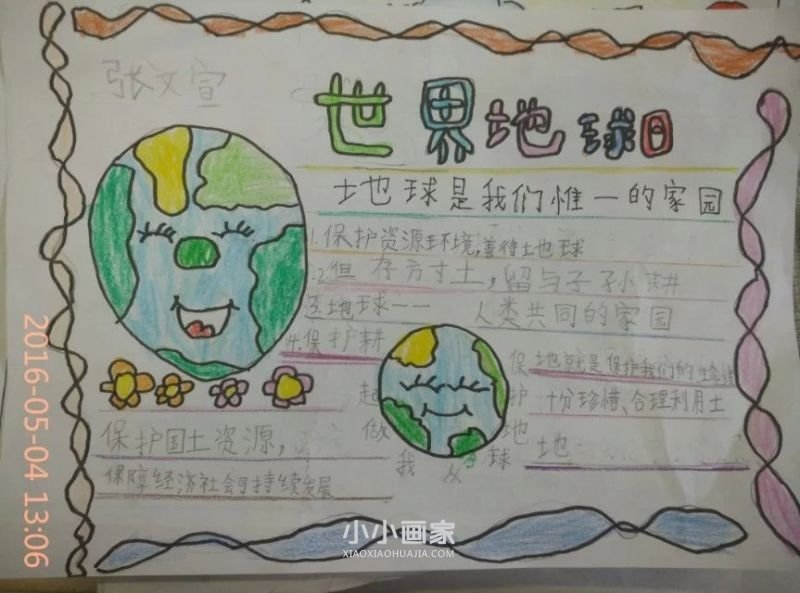 张文宣
世界地球日
地球是我们惟一的家园
1.保护资源环境,善待地球
2.但存方寸土,留与子孙耕
3.地球一一 人类共同的家园
4.保护耕
地就是保护我们的生命线
十分珍惜、合理利用土
地
保护地球 我 做起
保护国土资源,
保障经济社会可持续发展
2016-05-04 13:06
小小画家
XIAOXIAOHUAJIA.COM